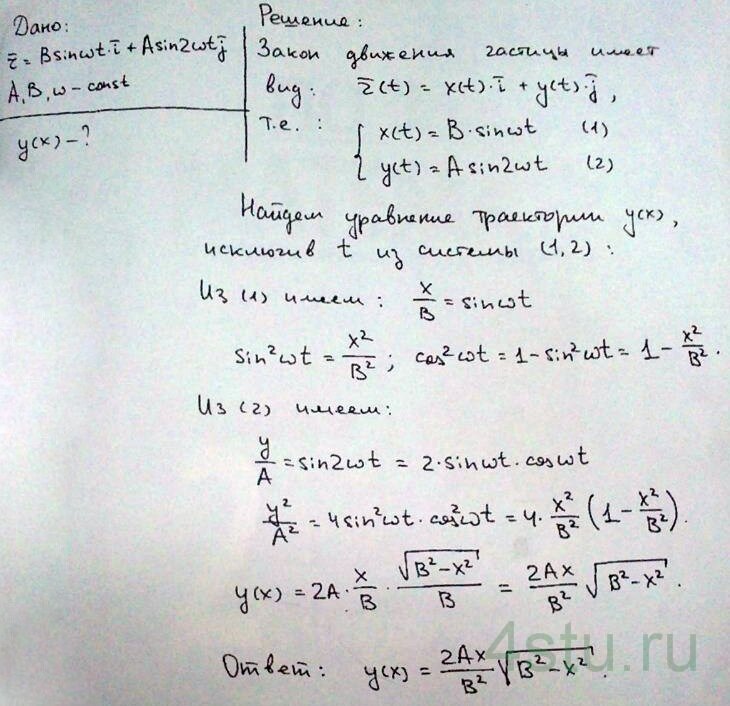 Дано:
r̄ = Bsinωt·ī + Asin2ωt j̄
A, B, ω – const
y(x) – ?
Решение:
Закон движения частицы имеет
вид: r̄(t) = x(t)·ī + y(t)·j̄,
т.е.: { x(t) = B·sinωt (1)
y(t) = A sin2ωt (2)
Найдем уравнение траектории y(x),
исключив t из системы (1,2):
Из (1) имеем: x/B = sinωt
sin²ωt = x²/B²; cos²ωt = 1 – sin²ωt = 1 – x²/B².
Из (2) имеем:
y/A = sin2ωt = 2·sinωt·cosωt
y²/A² = 4sin²ωt·cos²ωt = 4·x²/B² (1 – x²/B²).
y(x) = 2A·x/B·√(B²–x²)/B = 2Ax/B² √(B²–x²).
Ответ: y(x) = 2Ax/B² √(B²–x²).
4stu.ru